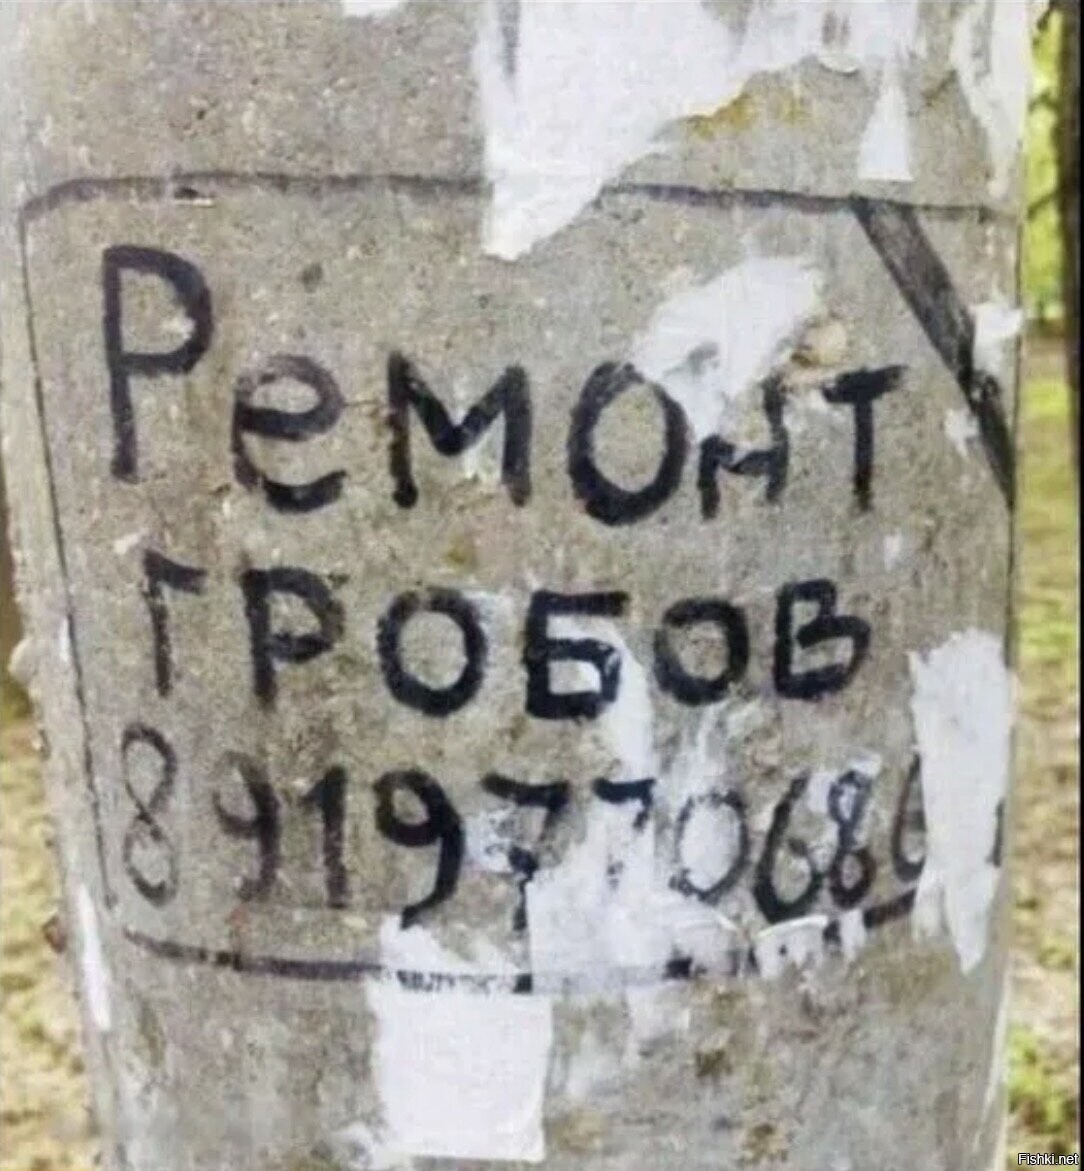 Ремонт
гробов
8919770686
Fishki.net